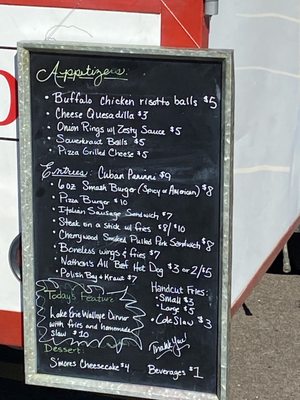 Appetizers:
• Buffalo chicken risotto balls $5
• Cheese Quesadilla $3
• Onion Rings w/ Zesty Sauce $5
• Sauerkraut Balls $5
• Pizza Grilled Cheese $5
Entrees: Cuban Panini $9
• 6oz Smash Burger (Spicy or American) $8
• Pizza Burger $10
• Italian Sausage Sandwich $7
• Steak on a Stick w/ fries $8/$10
• Cherrywood Smoked Pulled Pork Sandwich $8
• Boneless wings & fries $7
• Nathan's All Beef Hot Dog $3 or 2/$5
• Polish Boy & Kraut $7
Today's Feature
Lake Erie Walleye Dinner
with fries and homemade
slaw $10
Handcut Fries:
• Small $3
• Large $5
• Cole Slaw $3
Thank You!
Dessert:
S'mores Cheesecake $4
Beverages $1